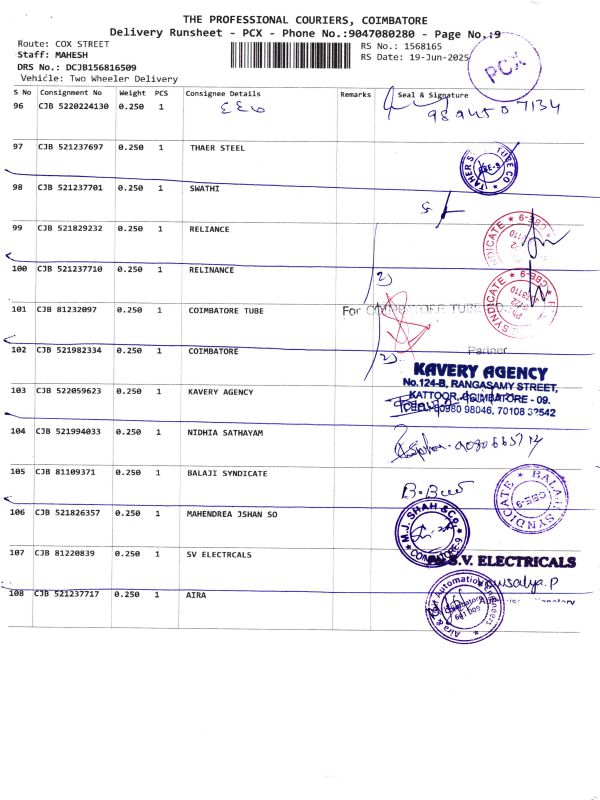 THE PROFESSIONAL COURIERS, COIMBATORE
Delivery Runsheet - PCX - Phone No.:9047080280 - Page No.:9
Route: COX STREET
Staff: MAHESH
DRS No.: DCJB156816509
Vehicle: Two Wheeler Delivery
RS No.: 1568165
RS Date: 19-Jun-2025
PCX
S No Consignment No Weight PCS Consignee Details Remarks Seal & Signature
96 CJB 5220224130 0.250 1
97 CJB 521237697 0.250 1 THAER STEEL
TAHER S TUBE CO CBE-9
98 CJB 521237701 0.250 1 SWATHI
99 CJB 521829232 0.250 1 RELIANCE
SYNDICATE CBE-9
100 CJB 521237710 0.250 1 RELINANCE
2)
SYNDICATE CBE-9
101 CJB 81232097 1 COIMBATORE TUBE
For COIMBATORE TUBE CO
Partner
102 CJB 521982334 0.250 1 COIMBATORE
2)
103 CJB 522059623 0.250 1 KAVERY AGENCY
KAVERY AGENCY
No.124-B, RANGASAMY STREET,
KATTOOR, COIMBATORE - 09.
98046, 70108
104 CJB 521994033 0.250 1 NIDHIA SATHAYAM
105 CJB 81109371 0.250 1 BALAJI SYNDICATE
BALAJI SYNDICATE CBE-9
106 CJB 521826357 0.250 1 MAHENDREA JSHAN SO
M.J. SHAH & Co. COIMBATORE-9
107 CJB 81220839 0.250 1 SV ELECTRCALS
S.V. ELECTRICALS
108 CJB 521237717 0.250 1 AIRA
Automation Engineers
Coimbatore
641 009